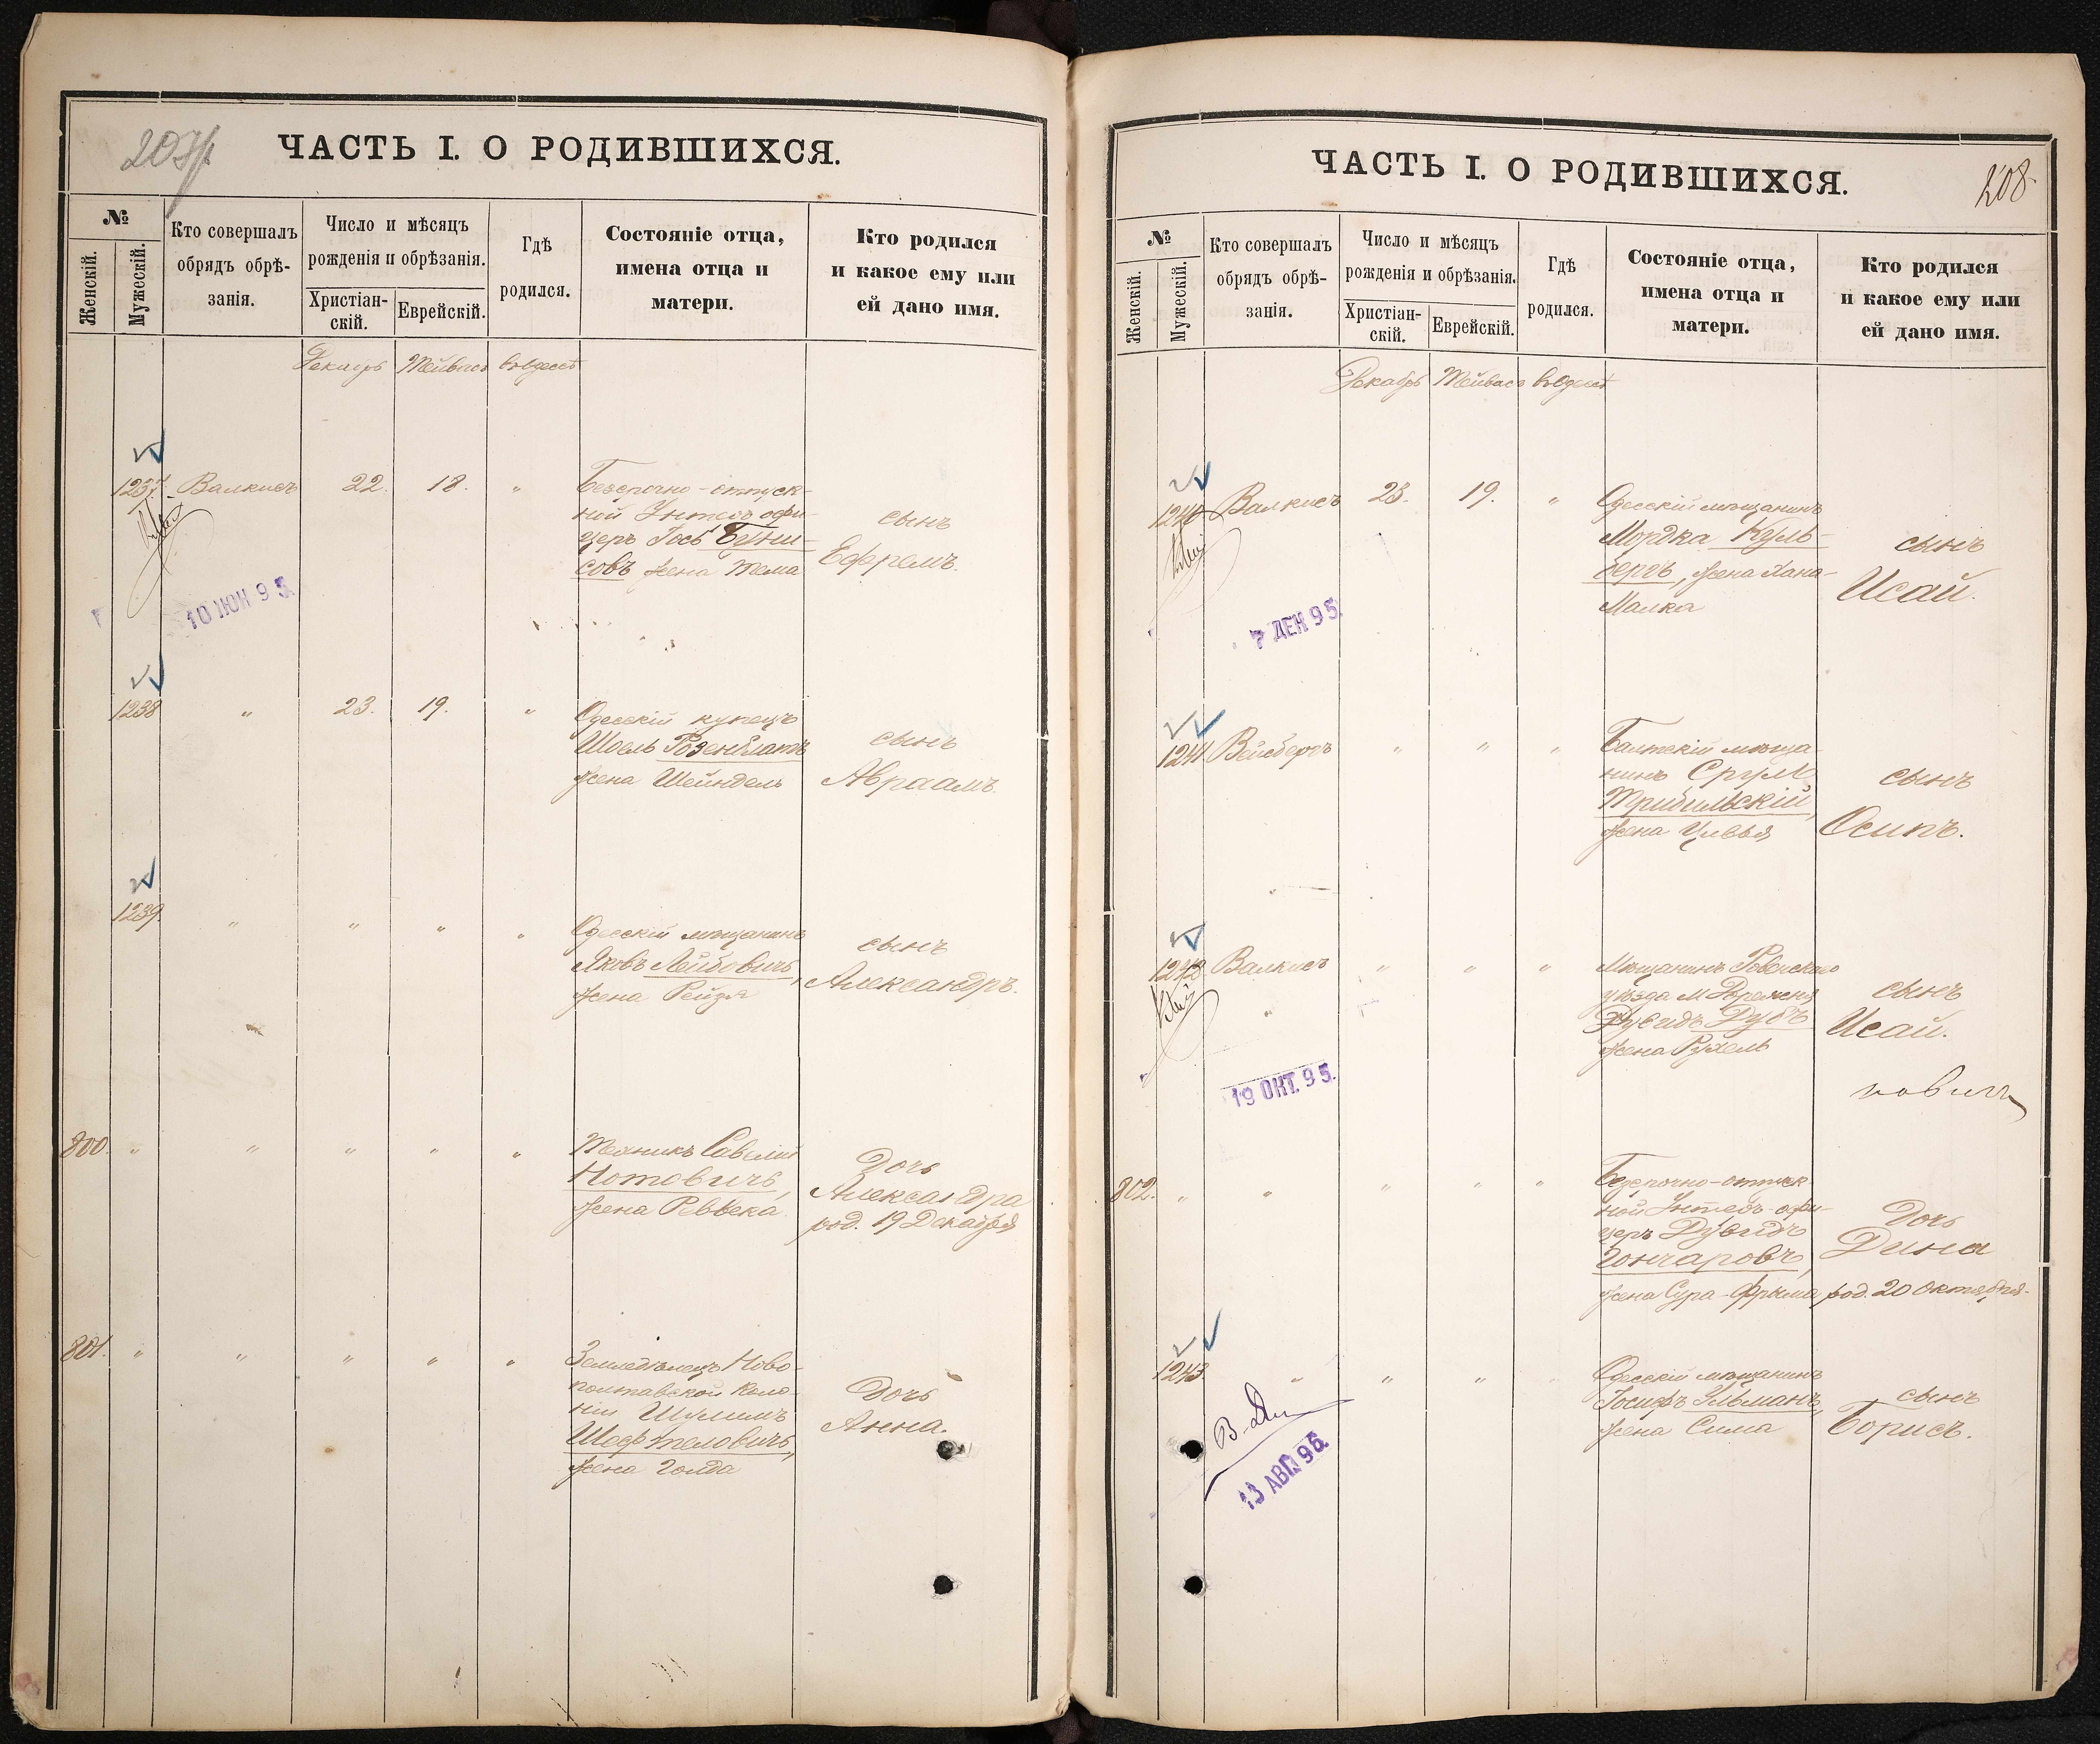 ЧАСТЬ I. О РОДИВШИХСЯ.
№
Женскій.
Мужескій.
Кто совершалъ обрядъ обрѣ-
занія.
Число и мѣсяцъ
рожденія и обрѣзанія.
Христіан-
скій.
Еврейскій.
Гдѣ
родился.
Состояніе отца,
имена отца и
матери.
Кто родился
и какое ему или
ей дано имя.
Декабрь Тейвасъ въ Одессѣ
1237. Валкисъ 22. 18. „
Безсрочно-отпуск-
ной Унтеръ офи-
церъ
совъ жена Тема
сынъ
Ефремъ.
10 ІЮН 95.
1238 „ 23. 19. „
Одесскій купецъ
Шоель Розенблатъ
жена Шейндель
сынъ
Авраамъ.
1239. „ „ „ „
Одесскій мѣщанинъ
Яковъ Лейбовичъ,
жена Рейзя
сынъ
Александръ.
800. „ „ „ „ „
Техникъ Савелій
Нотовичъ,
жена Реввека
Дочь
Александра
род. 19 Декабря
801. „ „ „ „ „
Земледѣлецъ Ново-
полтавской Коло-
ніи Шулимъ
Шефтеловичъ,
жена Голда
Дочь
Анна.
ЧАСТЬ I. О РОДИВШИХСЯ.
208.
№
Женскій.
Мужескій.
Кто совершалъ
обрядъ обрѣ-
занія.
Число и мѣсяцъ
рожденія и обрѣзанія.
Христіан-
скій.
Еврейскій.
Гдѣ
родился.
Состояніе отца,
имена отца и
матери.
Кто родился
и какое ему или
ей дано имя.
Декабрь Тейвасъ въ Одессѣ
1240 Валкисъ 23. 19. „
Одесскій мѣщанинъ
Мордка Куль-
бергъ, жена Хана-
Малка
сынъ
Исай.
7 ДЕК 95.
1241. Вейсбергъ „ „ „
Балтскій мѣща-
нинъ Сруль
жена Цивья
сынъ
Осипъ.
1242 Валкисъ „ „ „
Мѣщанинъ Ровенскаго
уѣзда М.
Дувидъ Дубъ
жена Рухель
сынъ
Исай.
19 ОКТ. 95.
802. „ „ „ „ „
Безсрочно-отпуск-
ной Унтеръ-офи-
церъ Дувидъ
Гончаровъ,
жена Сура-Фрыма
Дочь
Дина
род. 20 Октября.
1243 „ „ „ „
Одесскій мѣщанинъ
Іосифъ Ульманъ,
жена Сима
сынъ
Борисъ.
13 АВГ. 95.